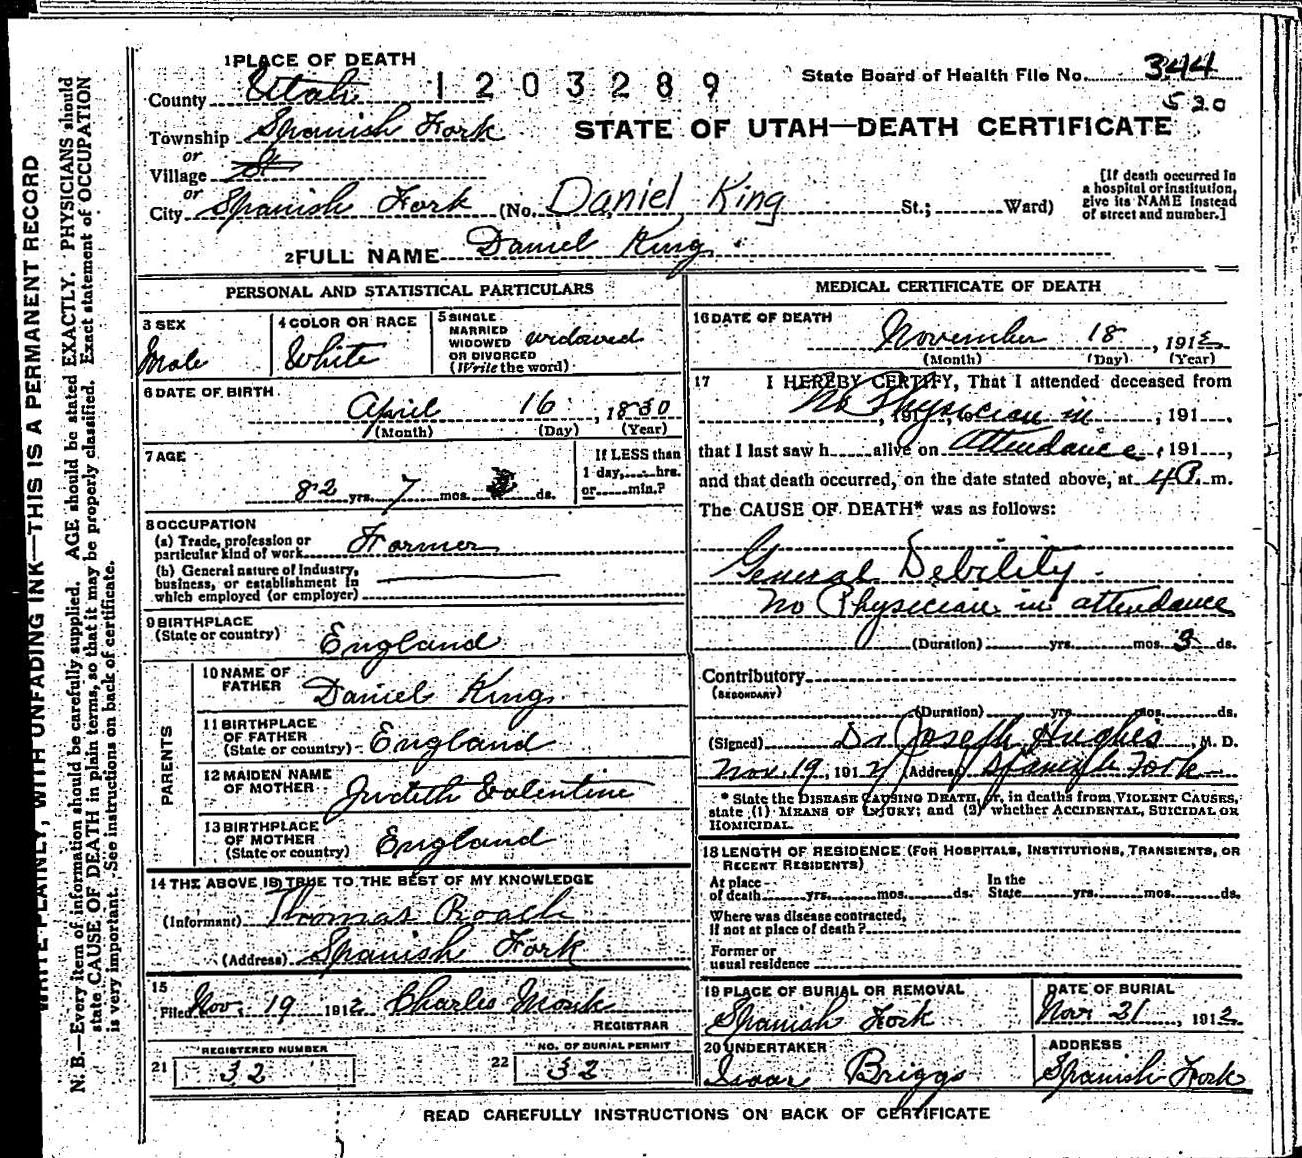 1 PLACE OF DEATH
State Board of Health File No. 344
County Utah 1203289
520
Township Spanish Fork
STATE OF UTAH—DEATH CERTIFICATE
or
Village
or
City Spanish Fork (No. Daniel King St.; Ward)
[If death occurred in
a hospital or institution,
give its NAME instead
of street and number.]
2 FULL NAME Daniel King
PERSONAL AND STATISTICAL PARTICULARS
3 SEX
Male
4 COLOR OR RACE
White
5 SINGLE
MARRIED
WIDOWED
OR DIVORCED
(Write the word)
widowed
6 DATE OF BIRTH
April 16, 1830
(Month) (Day) (Year)
7 AGE
82 yrs. 7 mos. ds.
If LESS than
1 day, hrs.
or min.?
8 OCCUPATION
(a) Trade, profession or
particular kind of work Farmer
(b) General nature of Industry,
business, or establishment in
which employed (or employer)
9 BIRTHPLACE
(State or country) England
PARENTS
10 NAME OF
FATHER Daniel King
11 BIRTHPLACE
OF FATHER
(State or country) England
12 MAIDEN NAME
OF MOTHER Judeth Valentine
13 BIRTHPLACE
OF MOTHER
(State or country) England
14 THE ABOVE IS TRUE TO THE BEST OF MY KNOWLEDGE
(Informant) Thomas Roach
(Address) Spanish Fork
15
Filed Nov. 19 1912 Charles Monk
REGISTRAR
21 REGISTERED NUMBER
32
22 NO. OF BURIAL PERMIT
32
MEDICAL CERTIFICATE OF DEATH
16 DATE OF DEATH
November 18, 1912
(Month) (Day) (Year)
17 I HEREBY CERTIFY, That I attended deceased from
No Physician in, 191 ,
that I last saw h alive on attendance, 191 ,
and that death occurred, on the date stated above, at 4 P. m.
The CAUSE OF DEATH* was as follows:
General Debility
No Physician in attendance
(Duration) yrs. mos. 3 ds.
Contributory
(SECONDARY)
(Duration) yrs. mos. ds.
(Signed) Dr Joseph Hughes, M. D.
Nov. 19, 1912 (Address) Spanish Fork
* State the DISEASE CAUSING DEATH, or, in deaths from VIOLENT CAUSES,
state (1) MEANS OF INJURY; and (2) whether ACCIDENTAL, SUICIDAL OR
HOMICIDAL.
18 LENGTH OF RESIDENCE (FOR HOSPITALS, INSTITUTIONS, TRANSIENTS, OR
RECENT RESIDENTS)
At place
of death yrs. mos. ds.
In the
State yrs. mos. ds.
Where was disease contracted,
if not at place of death?
Former or
usual residence
19 PLACE OF BURIAL OR REMOVAL
Spanish Fork
DATE OF BURIAL
Nov 21, 1912
20 UNDERTAKER
Isaac Briggs
ADDRESS
Spanish Fork
READ CAREFULLY INSTRUCTIONS ON BACK OF CERTIFICATE
WRITE PLAINLY, WITH UNFADING INK—THIS IS A PERMANENT RECORD
N. B.—Every item of information should be carefully supplied. AGE should be stated EXACTLY. PHYSICIANS should
state CAUSE OF DEATH in plain terms, so that it may be properly classified. Exact statement of OCCUPATION
is very important. See instructions on back of certificate.